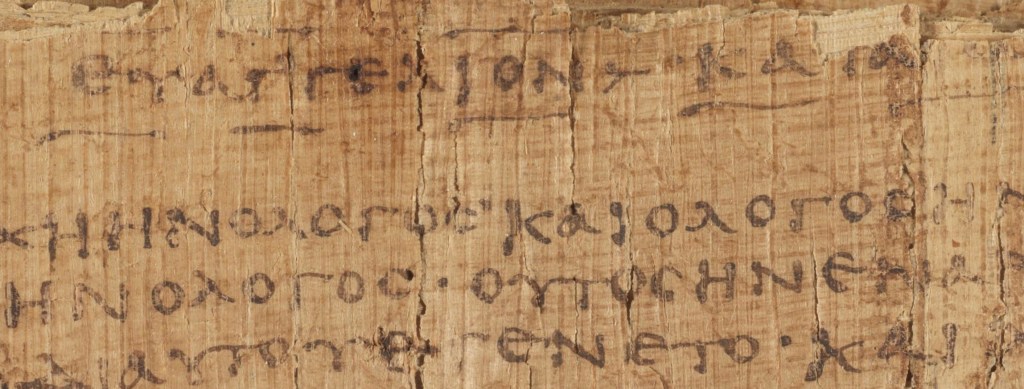 ΕΥΑΓΓΕΛΙΟΝ ΚΑΤΑ
ΧΗΗΝΟΛΟΓΟϹ ΚΑΙΟΛΟΓΟϹΗΝ
ΗΝΟΛΟΓΟϹ · ΟΥΤΟϹΗΝΕΝΑ
ΔΙΑΥΤΟΥΕΓΕΝΕΤΟ · ΚΑΙ